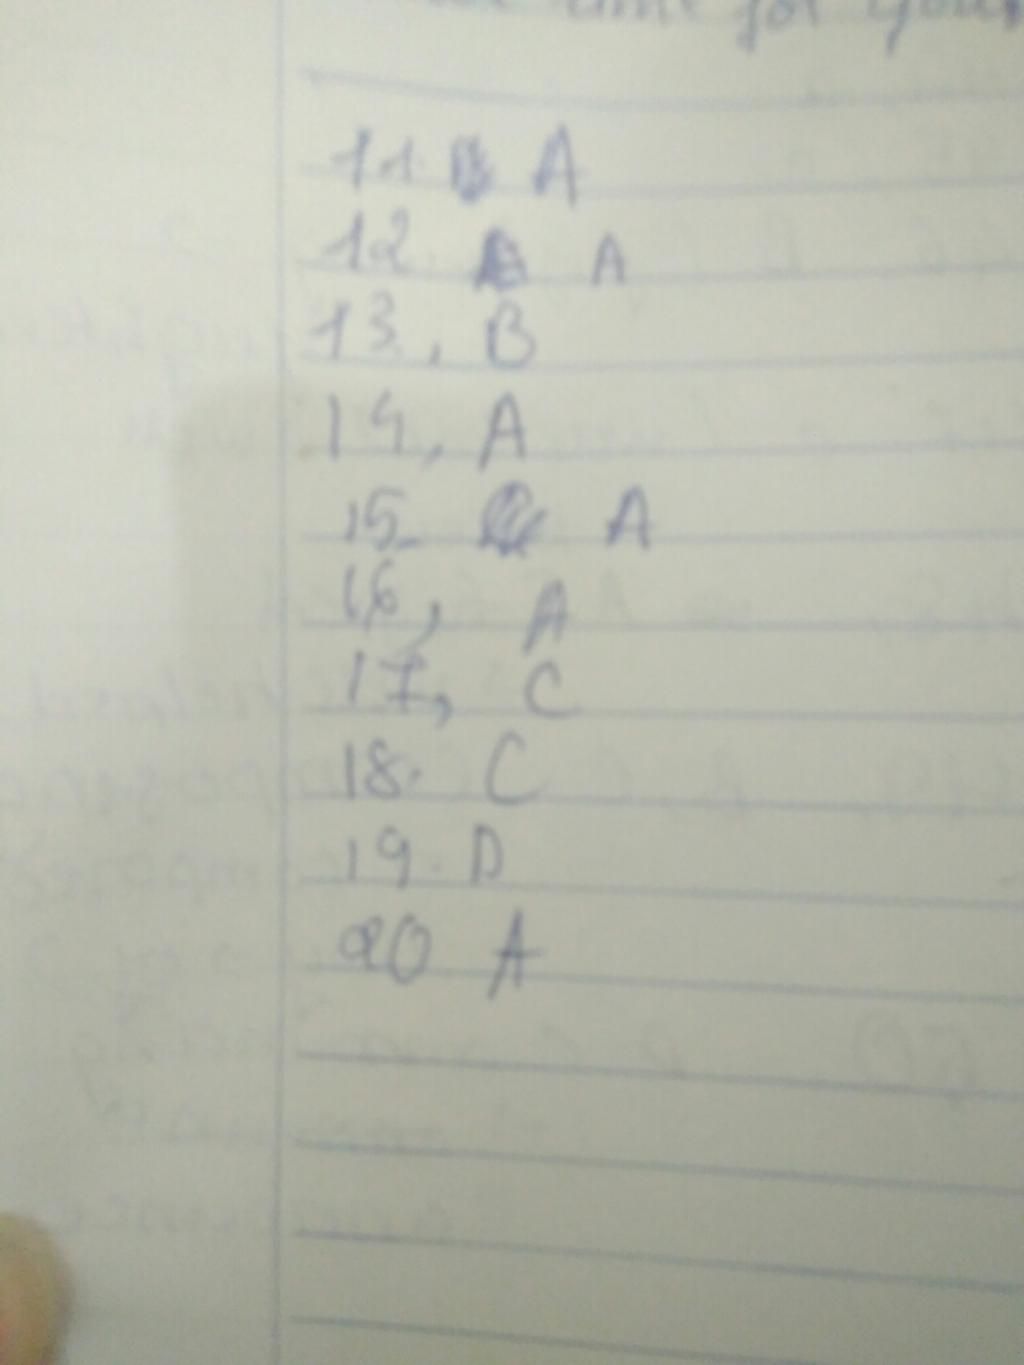 for your
11. A
12. A
13, B
14, A
15. A
16, A
17, C
18. C
19. D
20 A